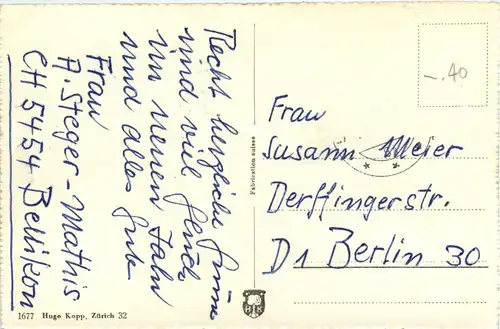 Recht herzliche Grüsse
und viel Glück
im neuen Jahr
und alles Gute
Frau
A. Steger-Mathis
CH 5454 Bellikon
-.40
Frau
Susann Meier
Derfflingerstr.
D1 Berlin 30
Fabrication suisse
1677 Hugo Kopp, Zürich 32